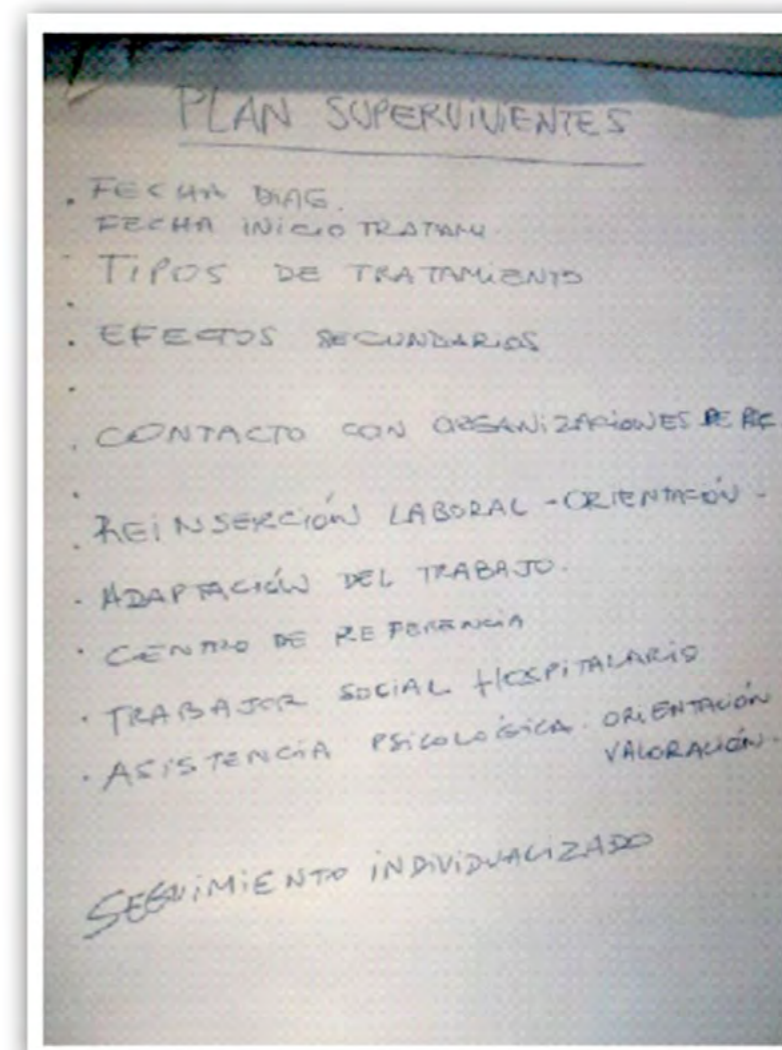 PLAN SUPERVIVIENTES
. FECHA DIAG.
FECHA INICIO TRATAM.
- TIPOS DE TRATAMIENTO
.
. EFECTOS SECUNDARIOS
.
. CONTACTO CON ORGANIZACIONES DE
.
. REINSERCIÓN LABORAL - ORIENTACIÓN -
. ADAPTACIÓN DEL TRABAJO.
. CENTRO DE REFERENCIA
. TRABAJOR SOCIAL HOSPITALARIO
. ASISTENCIA PSICOLÓGICA. ORIENTACIÓN
VALORACIÓN.
SEGUIMIENTO INDIVIDUALIZADO